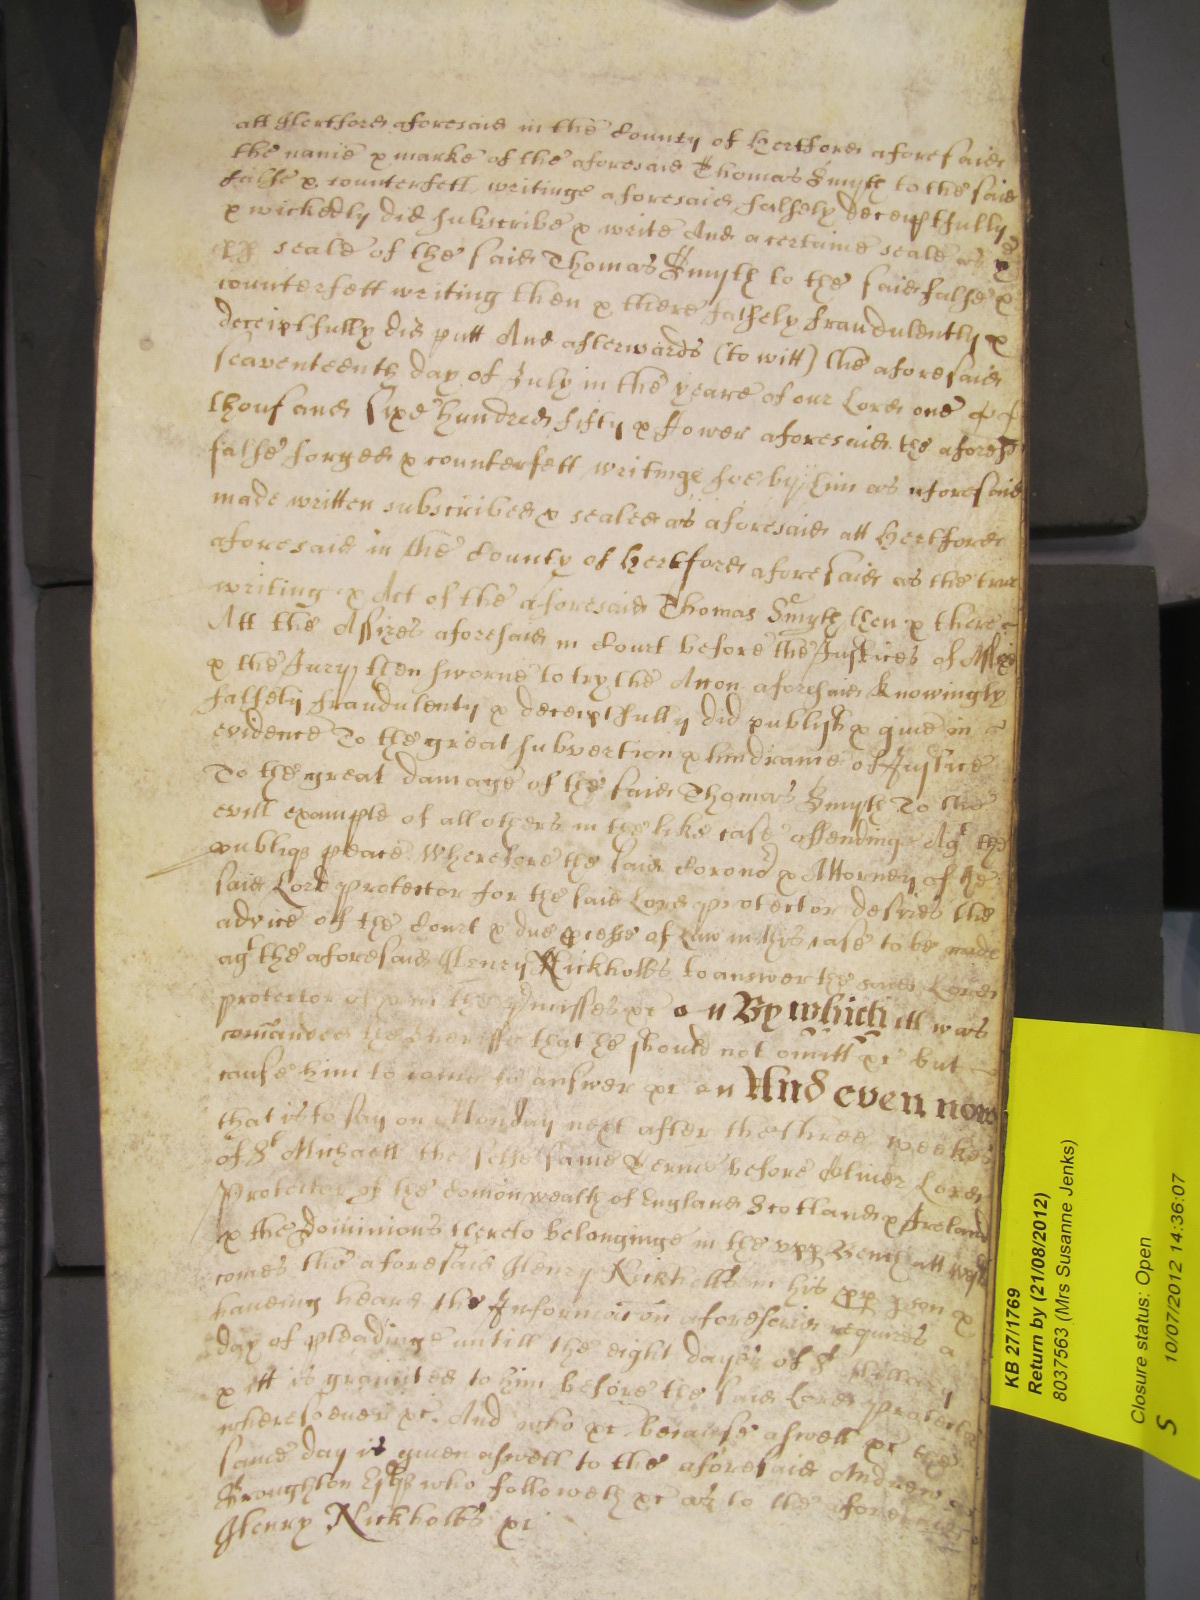 att Hertford aforesaid in the County of Hertford aforesaid
the name & marke of the aforesaid Thomas Smyth to the said
false & counterfett writinge aforesaid falsely deceiptfully
& wickedly did subscribe & write And a certaine seale as ye
seale of the said Thomas Smyth to the said false &
counterfett writing then & there falsely fraudulently &
deceiptfully did putt And afterwards (to witt) the aforesaid
seaventeenth day of July in the yeare of our Lord one
thousand sixe hundred fifty & fower aforesaid the aforesd
false forged & counterfett writinge soe by him as aforesaid
made written subscribed & sealed as aforesaid att Hertford
aforesaid in the County of Hertford aforesaid as the true
writing & Act of the aforesaid Thomas Smyth then & there
Att the Assizes aforesaid in Court before the Justices of Assize
& the Jury then sworne to try the Accon aforesaid knowingly
falsely fraudulently & deceiptfully did publish & give in
evidence To the great subvertion & hindrance of Justice
To the great damage of the said Thomas Smyth To the
evill example of all others in the like case offending Agt the
publiq peace Wherefore the said Coronr & Attorney of the
said Lord Protector for the said Lord Protector desires the
advice of the Court & due pcesse of Law in this case to be made
agt the aforesaid Henry Nickholls to answer the said Lord
Protector of & in the pmisses &c By which itt was
comanded the Sheriffe that he should not omitt &c but
cause him to come to answer &c And even now
that is to say on Monday next after the three weekes
of St Michaell the selfe same Terme before Oliver Lord
Protector of the Comonwealth of England Scotland & Ireland
& the Dominions thereto belonginge in the upp Bench att Westm
comes the aforesaid Henry Nickholls in his pp pson &
haveing heard the Informacon aforesaid requires a
day of pleadinge untill the eight dayes of St Hillary
& itt is graunted to him before the said Lord Protector
wheresoever &c. And who &c because aswell &c the
same day is given aswell to the aforesaid Andrew
Broughton Esqr who followeth &c as to the aforesaid
Henry Nickholls &c
KB 27/1769
Return by (21/08/2012)
8037563 (Mrs Susanne Jenks)
Closure status: Open
10/07/2012 14:36:07
S